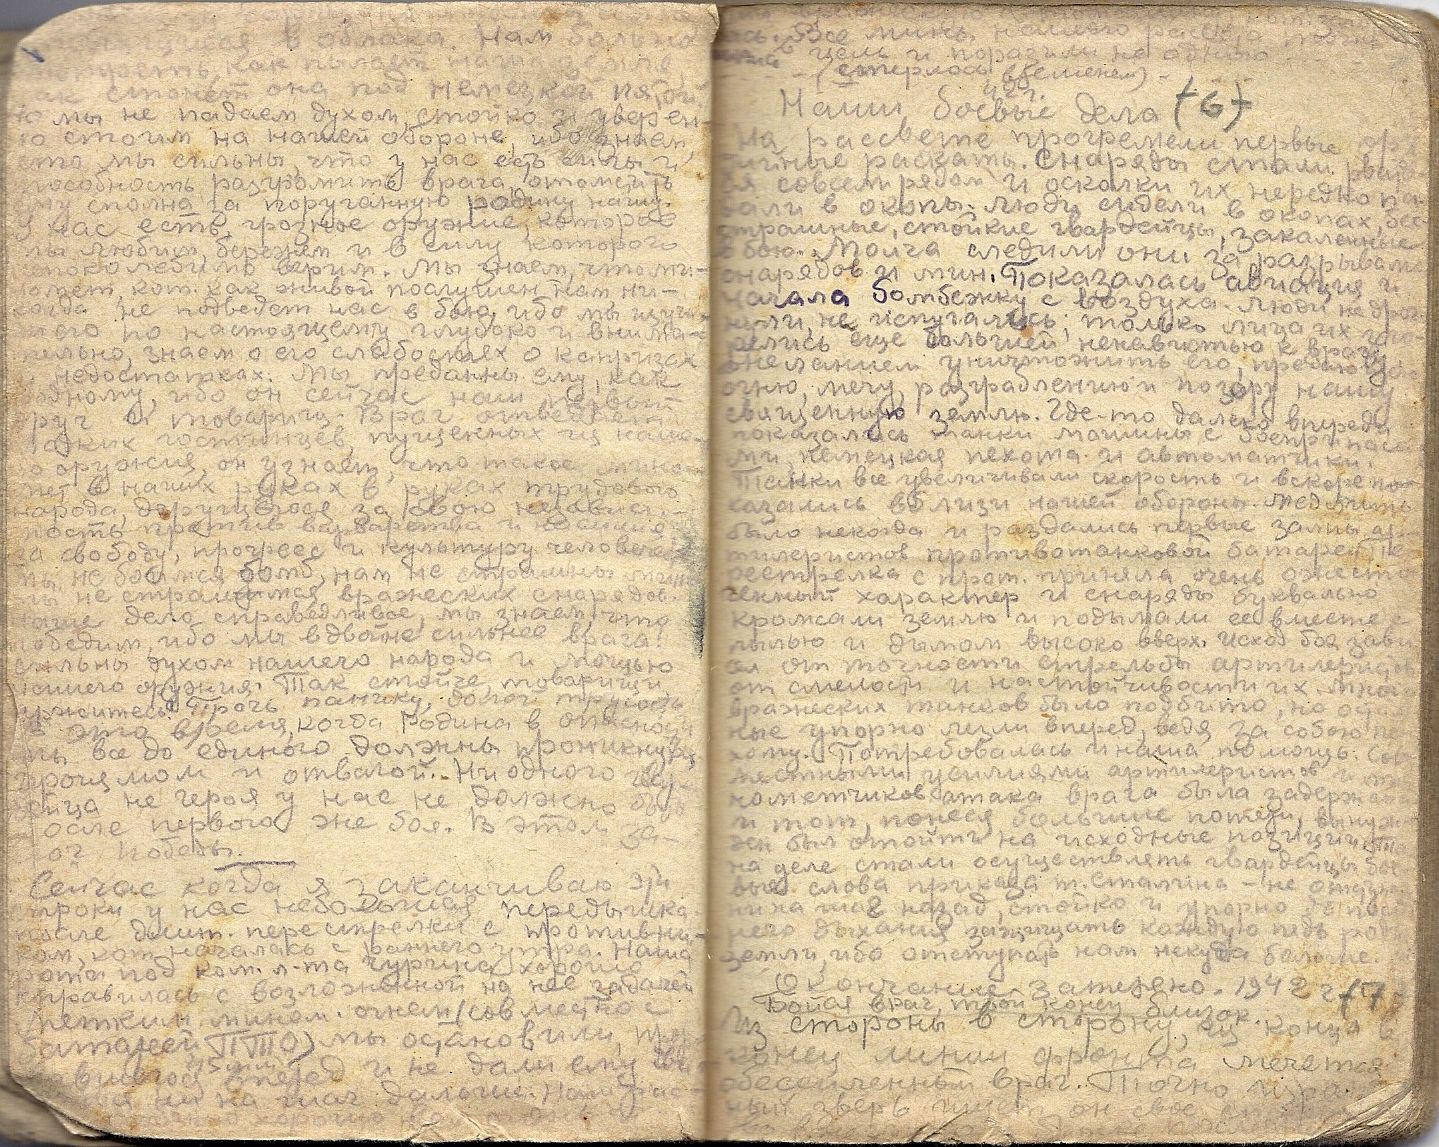 в облака. Нам больно
смотреть, как пылает наша земля,
как стонет она под немецкой пятой.
Но мы не падаем духом, стойко и уверен-
но стоим на нашей обороне, ибо знаем
что мы сильны, что у нас есть силы и
способность разгромить врага, отомстить
ему сполна за поруганную родину нашу.
У нас есть грозное оружие, которое
мы любим, бережем и в силу которого
непоколебимо верим. Мы знаем, что ми-
номет, кот. как живой послушен нам ни-
когда не подведет нас в бою, ибо мы изучи-
ли его по настоящему глубоко и внима-
тельно, знаем о его слабостях о капризах
и недостатках. Мы преданны ему, как
родному, ибо он сейчас наш первый
друг и товарищ. Враг отведает
наших гостинцев, пущенных из наше-
го оружия, он узнает, что такое мино-
мет в наших руках в руках трудового
народа, дерущегося за свою независи-
мость против варварства и
за свободу, прогресс и культуру человека
мы не боимся бомб, нам не страшны мины
мы не страшимся вражеских снарядов.
Наше дело справедливое, мы знаем, что
победим, ибо мы вдвойне сильнее врага!
сильны духом нашего народа и мощью
нашего оружия. Так стойте, товарищи
держитесь! Прочь панику, долой трусость
в это время, когда Родина в опасности
мы все до единого должны проникнуться
героизмом и отвагой. Ни одного гвар-
дейца не героя у нас не должно быть
после первого же боя. В этом за-
лог победы.
Сейчас когда я заканчиваю эти
строки у нас небольшая передышка
после длит. перестрелки с противни-
ком, кот. началась с раннего утра. Наша
рота под ком. л-та хорошо
справилась с возложенной на нее задачей
Метким мином. огнем (совместно с
батареей ПТО) мы остановили,
45 мм.
вперед и не дали ему
ни на шаг дальше. Нам
хорошо
Все мины нашего расчета
в цель и поразили не одного
(стерлось временем) -
Наши боевые дела (6)
На рассвете прогремели первые ору-
дийные раскаты. Снаряды стали рвать-
ся совсем рядом и осколки их нередко па-
дали в окопы. Люди сидели в окопах, бес-
страшные, стойкие гвардейцы, закаленные
в бою. Молча следили они за разрывами
снарядов и мин. Показалась авиация и
начала бомбежку с воздуха. Люди не дрог-
нули, не испугались; только лица их заго-
релись еще большей ненавистью к врагу
желанием уничтожить его,
огню, мечу, разграблению и позору нашу
священную землю. Где-то далеко впереди
показались танки машины с боеприпаса-
ми, немецкая пехота и автоматчики.
Танки все увеличивали скорость и вскоре по-
казались вблизи нашей обороны. Медлить
было некогда и раздались первые залпы ар-
тилеристов противотанковой батареи. Пе-
рестрелка с прот. приняла очень ожесто-
ченный характер и снаряды буквально
кромсали землю и подымали ее вместе с
пылью и дымом высоко вверх. Исход боя зави-
сел от точности стрельбы артилеристов
от смелости и настойчивости их. Много
вражеских танков было подбито, но осталь-
ные упорно лезли вперед, ведя за собою пе-
хоту. Потребовалась и наша помощь. Сов-
местными усилиями артилеристов и ми-
нометчиков атака врага была задержана
и тот, понеся большие потери, вынуж-
ден был отойти на исходные позиции. Так
на деле стали осуществлять гвардейцы бое-
вые слова приказа т. Сталина - не
ни на шаг назад, стойко и упорно до послед-
него дыхания защищать каждую пядь род.
земли, ибо отступать нам некуда больше.
Окончание затеряно. 1942 г (7)
Бойся враг, твой конец близок.
Из стороны в сторону, из конца в
конец линии фронта мечется
обессиленный враг. Точно
зверь ищет он свое